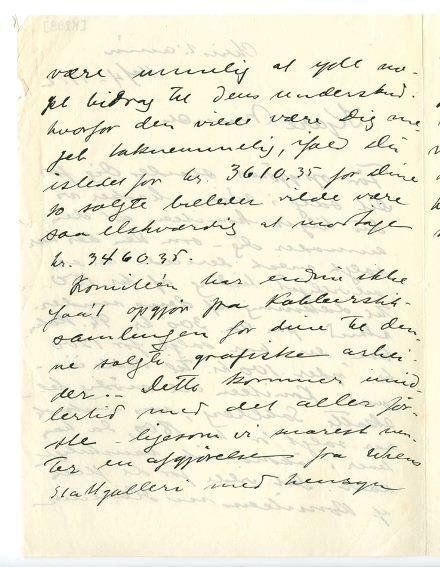 være umulig at yde no-
get bidrag til dens underskud.
hvorfor den vilde være Dig me-
get taknemmelig, ifald Du
istedet for kr. 3610.35 for Dine
to solgte billeder vilde være
saa elskværdig at modtage
kr. 3460.35.
Komitéen har endnu ikke
faa't opgjør fra Kobberstik-
samlingen for dine til den-
ne solgte grafiske arbei-
der. – Dette kommer imid-
lertid med det aller før-
ste – ligesom vi snarest ven-
ter en afgjørelse fra Wiens
Statsgalleri med hensyn